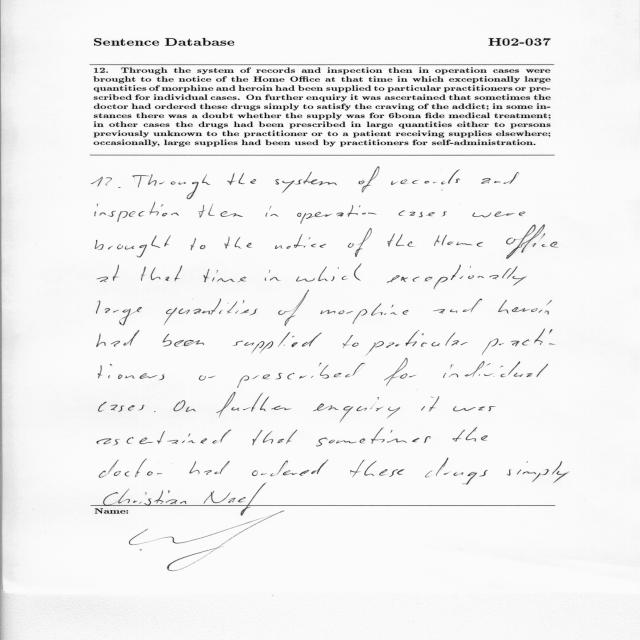 Sentence Database H02-037
12. Through the system of records and inspection then in operation cases were
brought to the notice of the Home Office at that time in which exceptionally large
quantities of morphine and heroin had been supplied to particular practitioners or pre-
scribed for individual cases. On further enquiry it was ascertained that sometimes the
doctor had ordered these drugs simply to satisfy the craving of the addict; in some in-
stances there was a doubt whether the supply was for 6bona fide medical treatment;
in other cases the drugs had been prescribed in large quantities either to persons
previously unknown to the practitioner or to a patient receiving supplies elsewhere;
occasionally, large supplies had been used by practitioners for self-administration.
12. Through the system of records and
inspection then in operation cases were
brought to the notice of the Home Office
at that time in which exceptionally
large quantities of morphine and heroin
had been supplied to particular practi-
tioners or prescribed for individual
cases. On further enquiry it was
ascertained that sometimes the
doctor had ordered these drugs simply
Christian Naef
Name: